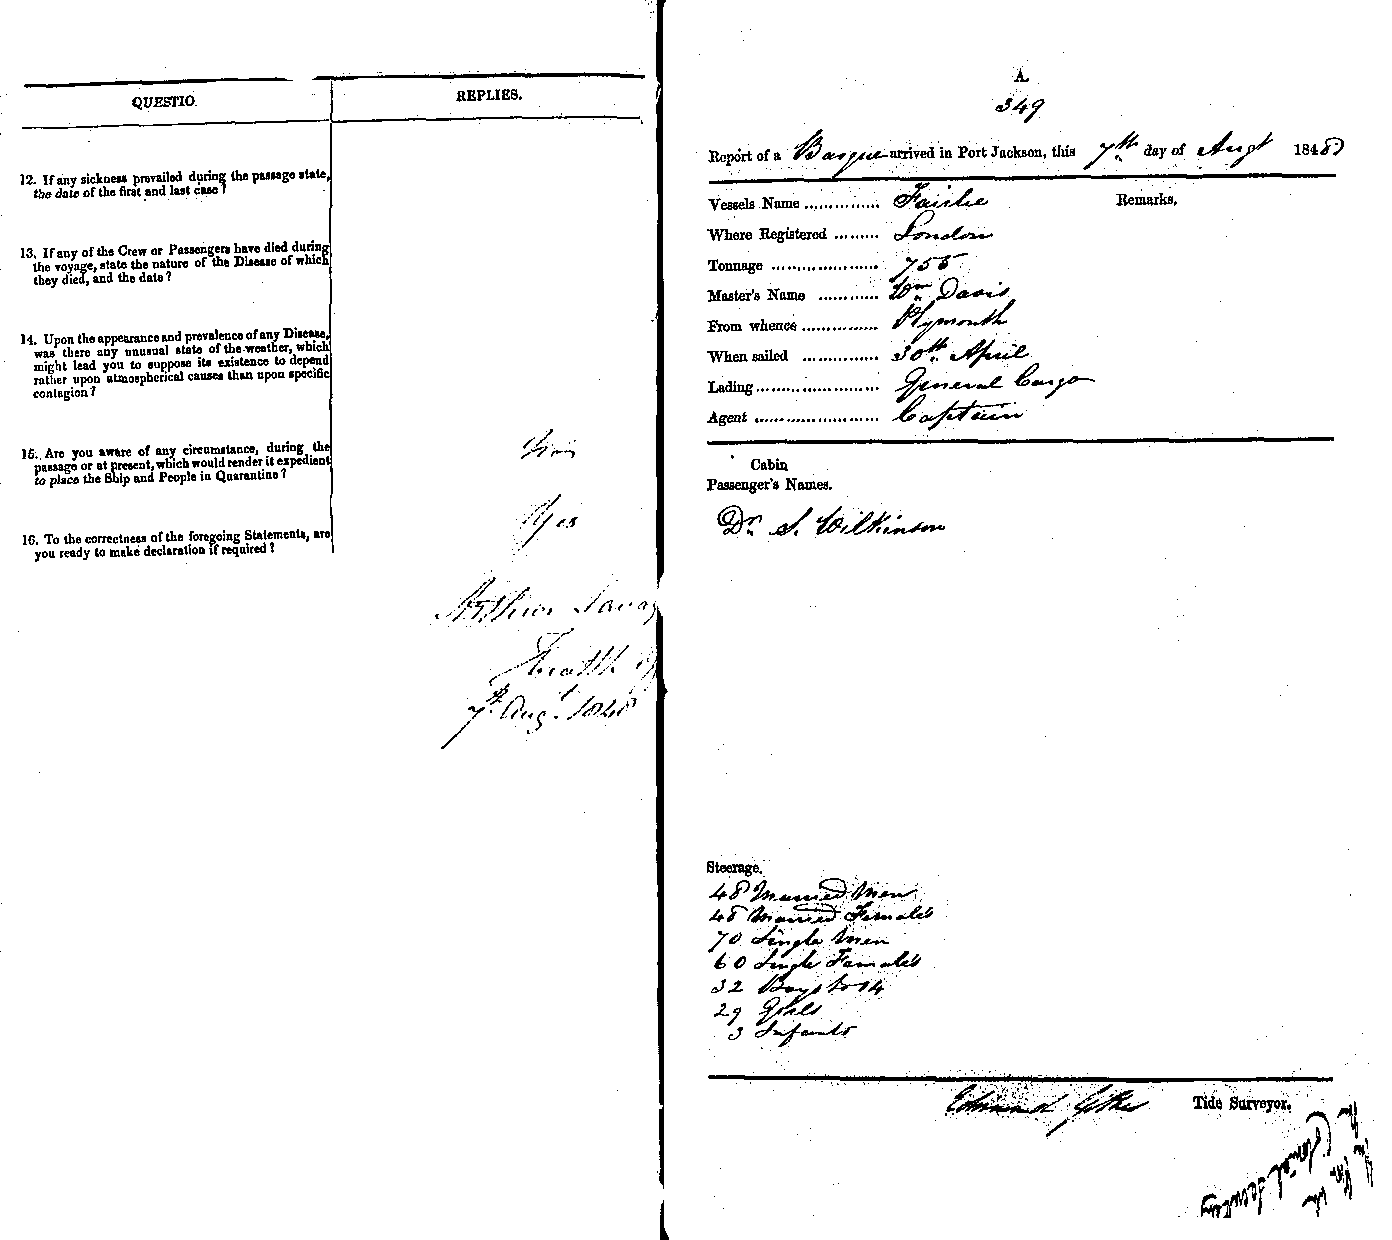 QUESTIO
REPLIES.
12. If any sickness prevailed during the passage state,
the date of the first and last case?
13. If any of the Crew or Passengers have died during
the voyage, state the nature of the Disease of which
they died, and the date?
14. Upon the appearance and prevalence of any Disease,
was there any unusual state of the weather, which
might lead you to suppose its existence to depend
rather upon atmospherical causes than upon specific
contagion?
15. Are you aware of any circumstance, during the
passage or at present, which would render it expedient
to place the Ship and People in Quarantine?
16. To the correctness of the foregoing Statements, are
you ready to make declaration if required?
Yes
Arthur Savag
Health
7th Augt 1848
A.
349
Report of a Barque arrived in Port Jackson, this 7th day of Augt 1848
Vessels Name ............... Fairlie
Remarks.
Where Registered ......... London
Tonnage .................... 755
Master's Name ............ Wm Davis
From whence .............. Plymouth
When sailed ............... 30th April
Lading........................ General Cargo
Agent ....................... Captain
Cabin
Passenger's Names.
Dr. S. Wilkinson
Steerage.
48 Married Men
48 Married Females
70 Single Men
60 Single Females
32 Boys to 14
29 Girls
3 Infants
Tide Surveyor.